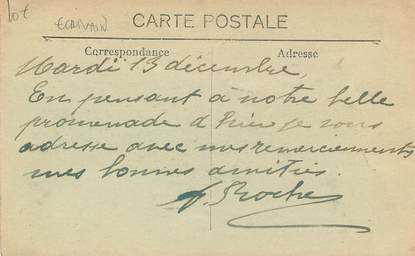 lot
ECRIVAIN
CARTE POSTALE
Correspondance Adresse
Mardi 13 décembre,
En pensant à notre belle
promenade d'hier je vous
adresse avec mes remerciements
mes bonnes amitiés.
Roche